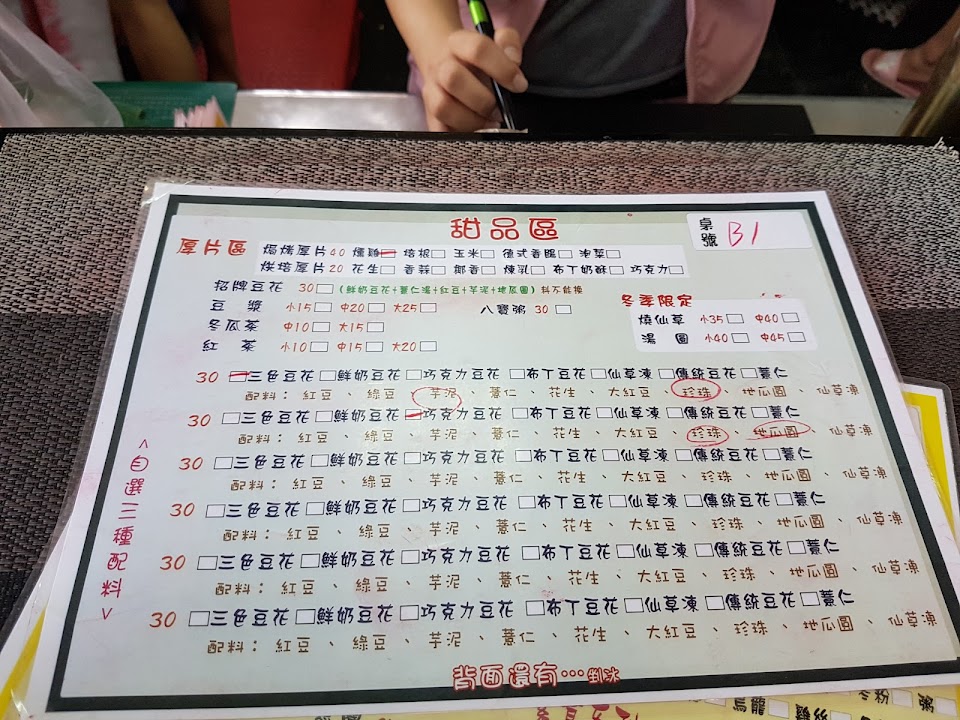 甜品區
桌號 B1
厚片區 焗烤厚片40 燻雞□ 培根□ 玉米□ 德式香腸□ 泡菜□
烘培厚片20 花生□ 香蒜□ 椰香□ 煉乳□ 布丁奶酥□ 巧克力□
招牌豆花 30□(鮮奶豆花+薏仁湯+紅豆+芋泥+地瓜圓)料不能換
豆漿 小15□ 中20□ 大25□ 八寶粥 30□
冬瓜茶 中10□ 大15□
紅茶 小10□ 中15□ 大20□
冬季限定
燒仙草 小35□ 中40□
湯圓 小40□ 中45□
<自選三種配料>
30 □三色豆花□鮮奶豆花□巧克力豆花□布丁豆花□仙草凍□傳統豆花□薏仁
配料：紅豆、綠豆、芋泥、薏仁、花生、大紅豆、珍珠、地瓜圓、仙草凍
30 □三色豆花□鮮奶豆花□巧克力豆花□布丁豆花□仙草凍□傳統豆花□薏仁
配料：紅豆、綠豆、芋泥、薏仁、花生、大紅豆、珍珠、地瓜圓、仙草凍
30 □三色豆花□鮮奶豆花□巧克力豆花□布丁豆花□仙草凍□傳統豆花□薏仁
配料：紅豆、綠豆、芋泥、薏仁、花生、大紅豆、珍珠、地瓜圓、仙草凍
30 □三色豆花□鮮奶豆花□巧克力豆花□布丁豆花□仙草凍□傳統豆花□薏仁
配料：紅豆、綠豆、芋泥、薏仁、花生、大紅豆、珍珠、地瓜圓、仙草凍
30 □三色豆花□鮮奶豆花□巧克力豆花□布丁豆花□仙草凍□傳統豆花□薏仁
配料：紅豆、綠豆、芋泥、薏仁、花生、大紅豆、珍珠、地瓜圓、仙草凍
30 □三色豆花□鮮奶豆花□巧克力豆花□布丁豆花□仙草凍□傳統豆花□薏仁
配料：紅豆、綠豆、芋泥、薏仁、花生、大紅豆、珍珠、地瓜圓、仙草凍
背面還有…剉冰
烏龍□ 冬粉□ 粥